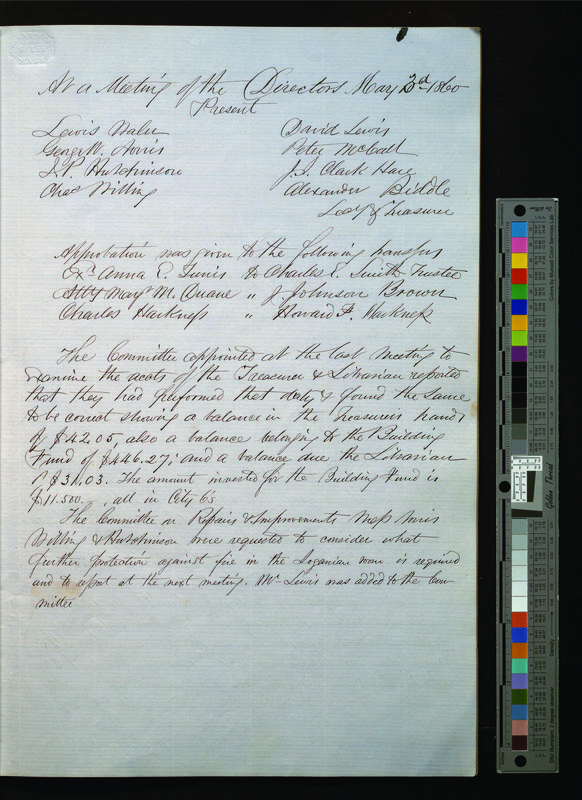 At a Meeting of the Directors. May 3d 1860
Present
Lewis Waln
David Lewis
George W. Norris
Peter McCall
I. P. Hutchinson
J. I. Clark Hare
Chas Willing
Alexander Biddle
Secy & Treasurer
Approbation was given to the following transfers
Exr Anna C. Tunis to Charles E. Smith Trustee
Atty Mary M. Duane " J Johnson Brown
Charles Harkness " Howard F. Harkness
The Committee appointed at the last meeting to
examine the accts of the Treasurer & Librarian reported
that they had performed that duty & found the same
to be correct showing a balance in the Treasurer's hands
of $42.05, also a balance belonging to the Building
Fund of $446.27; and a balance due the Librarian
of $31.03. The amount invested for the Building Fund is
$11.500.—, all in City 6's
The Committee on Repairs & Improvements Messrs
Willing & Hutchinson were requested to consider what
further protection against fire in the Loganian room is required
and to report at the next meeting. Mr Lewis was added to the Com
mittee
Golden Thread